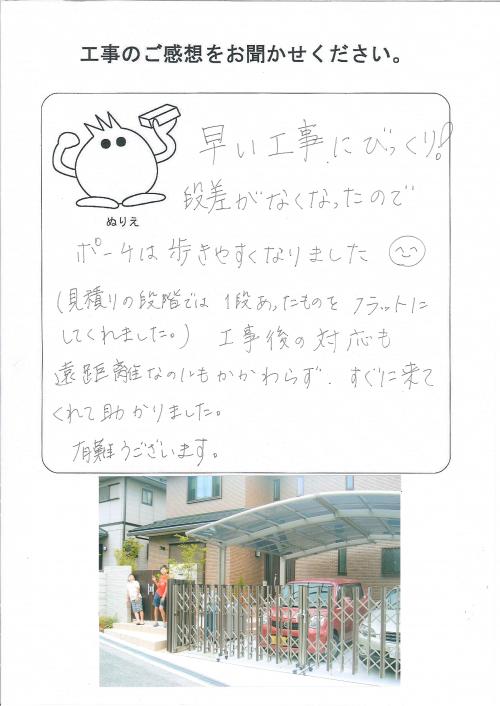 工事のご感想をお聞かせください。
ぬりえ
早い工事にびっくり!
段差がなくなったので
ポーチは歩きやすくなりました
(見積りの段階では1段あったものをフラットに
してくれました。) 工事後の対応も
遠距離なのにもかかわらず、すぐに来て
くれて助かりました。
有難うございます。